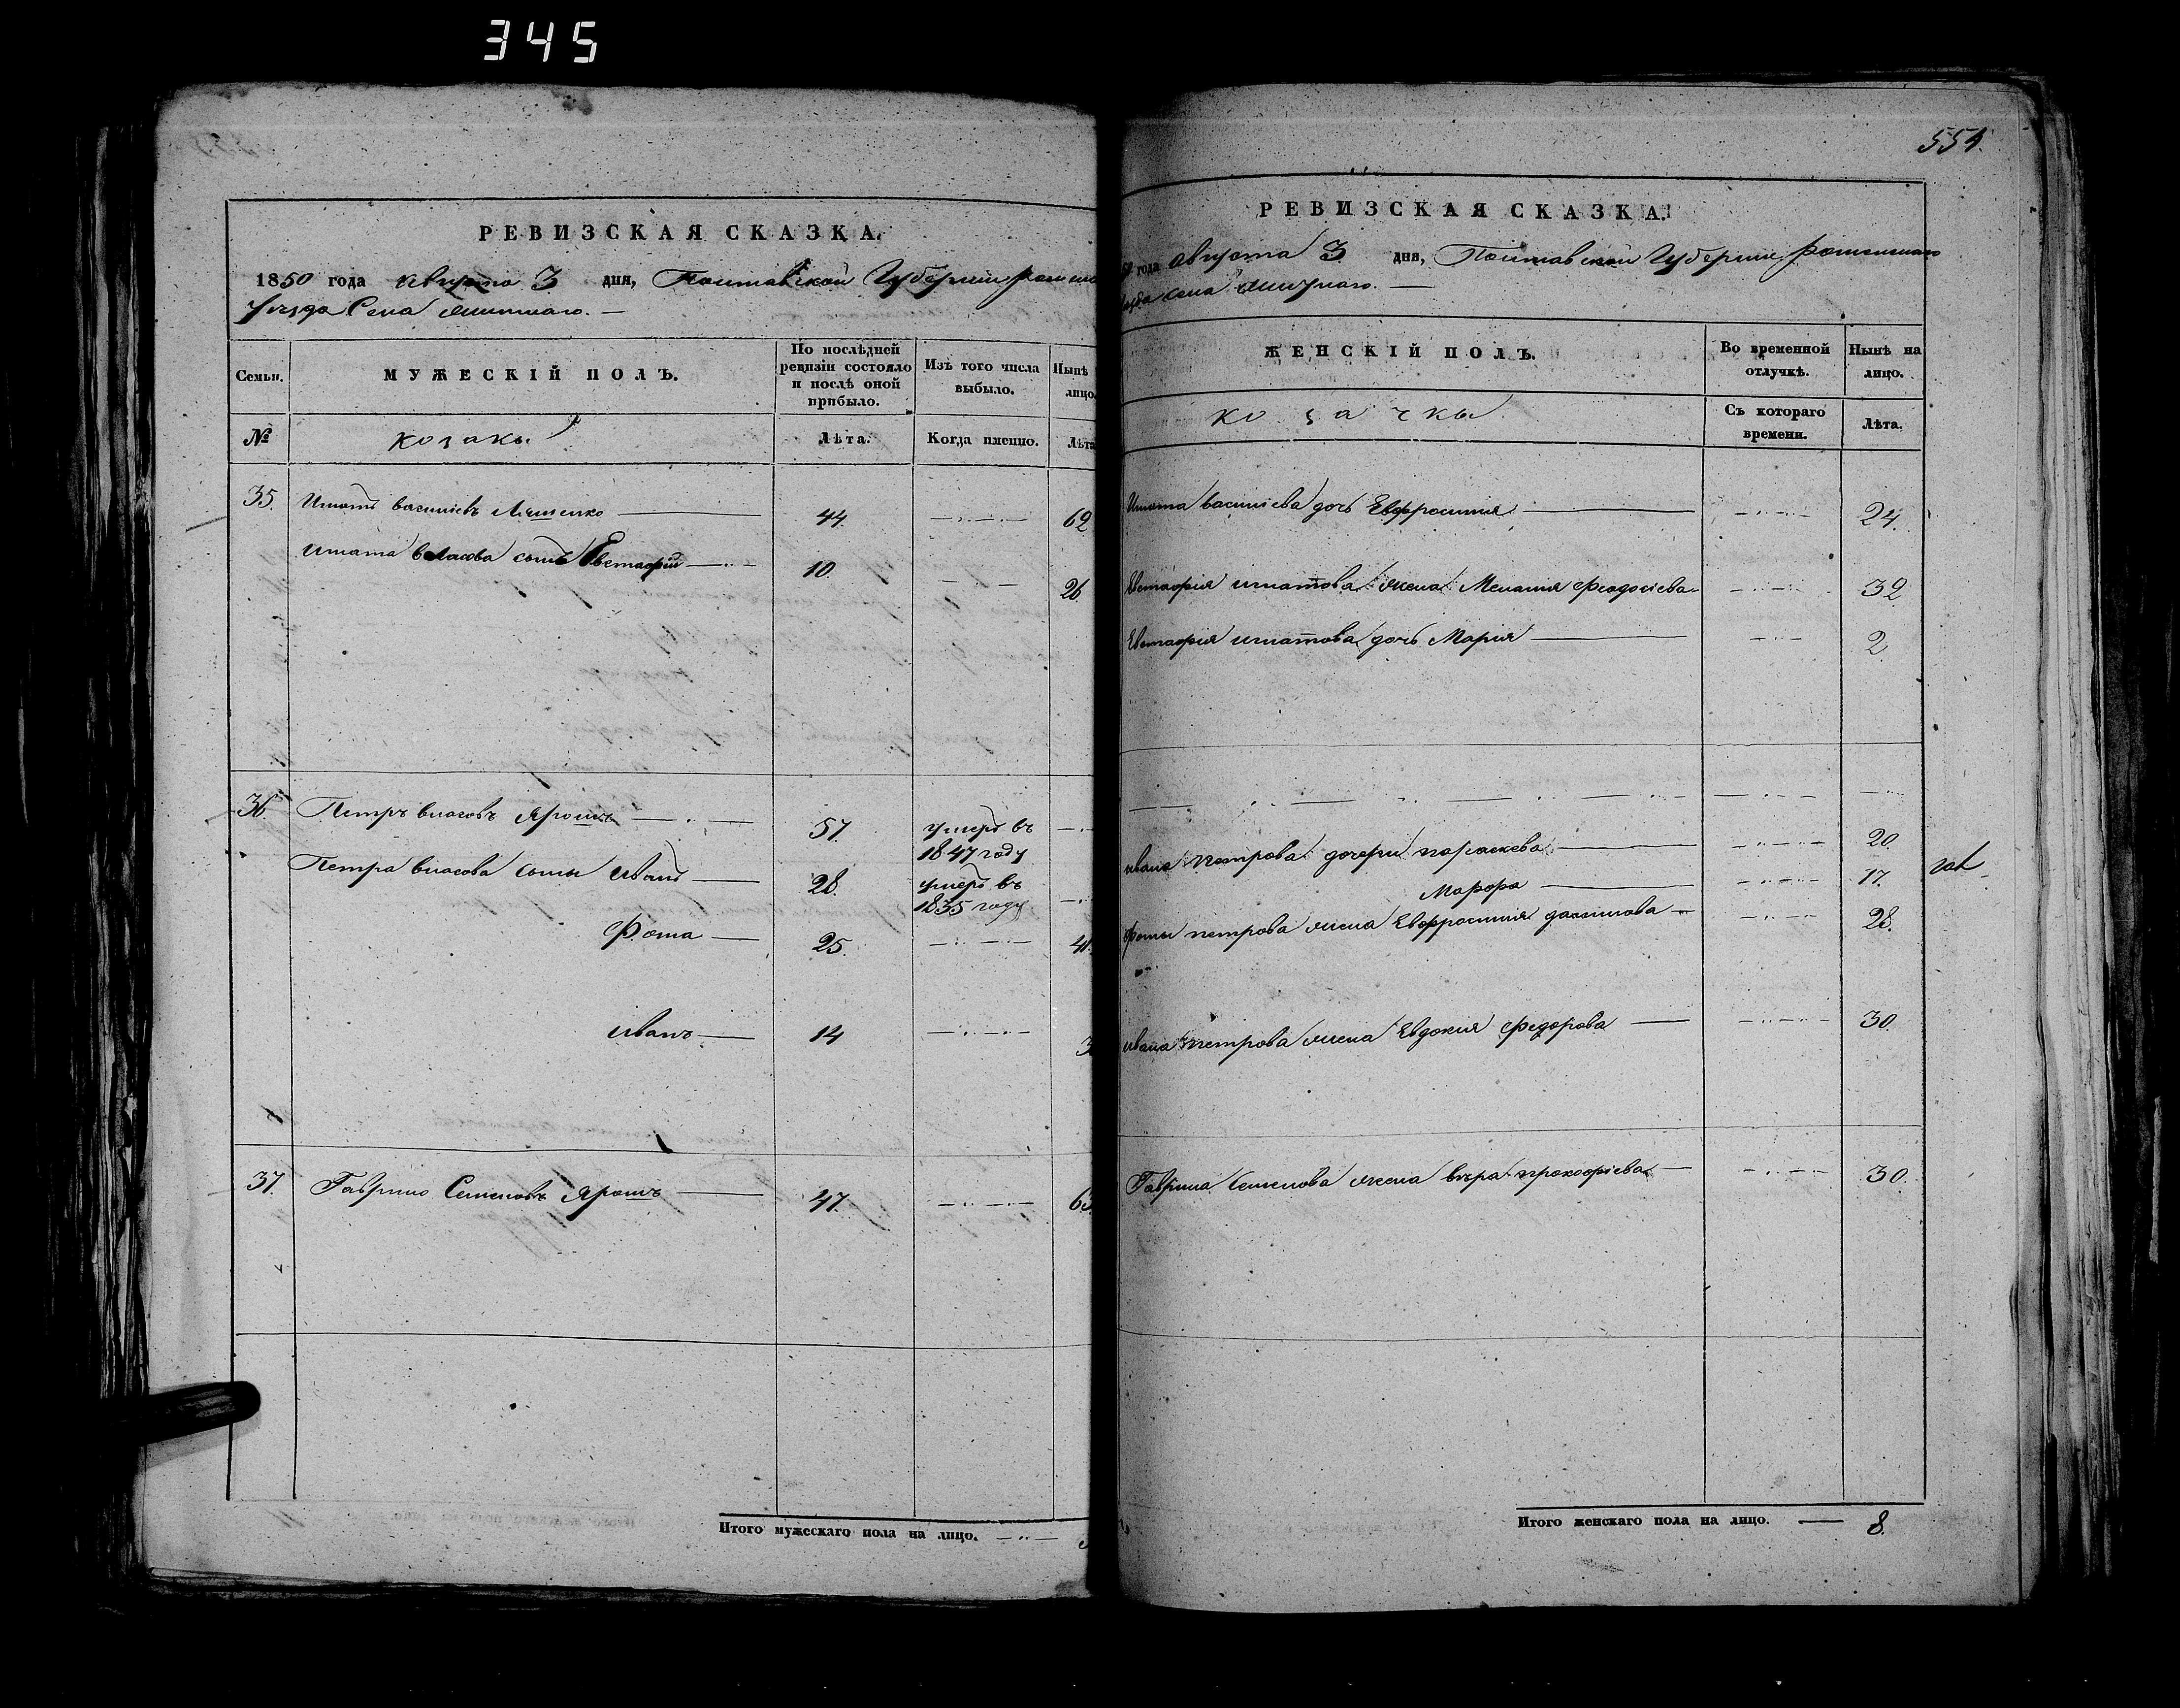 345
РЕВИЗСКАЯ СКАЗКА.
1850 года августа 3 дня, Полтавской Губернии
Уезда Села
Семьи.
МУЖЕСКІЙ ПОЛЪ.
По послѣдней ревизіи состояло и послѣ оной прибыло.
Изъ того числа выбыло.
Нынѣ
лицо.
№
козаки
Лѣта.
Когда именно.
Лѣта
35.
Игнатъ васильевъ
44.
62
Игната сынъ Евстафій
10.
26.
36.
Петръ власовъ Ярошъ
57.
умеръ въ
1847 году
Петра власова сыны Иванъ
28.
умеръ въ
1835 году
Фома
25.
41.
Иванъ
14
3
37.
Гаврило Семеновъ Ярошъ
47.
63
Итого мужескаго пола на лицо.
554.
РЕВИЗСКАЯ СКАЗКА.
года августа 3 дня, Полтавской Губернии
села
ЖЕНСКІЙ ПОЛЪ.
Во временной отлучкѣ.
Нынѣ на лицо.
козачки
Съ котораго времени.
Лѣта.
Игната васильева дочь Евфросинія
24.
Евстафія игнатова жена Меланія феодосіева
32
Евстафія игнатова дочь Марія
2
ивана петрова дочери параскева
20.
Марфа
17.
Фомы петрова жена Евфросинія
28.
ивана петрова жена Евдокия федорова
30.
Гаврила Семенова жена вѣра прокофіева
30.
Итого женскаго пола на лицо.
8.